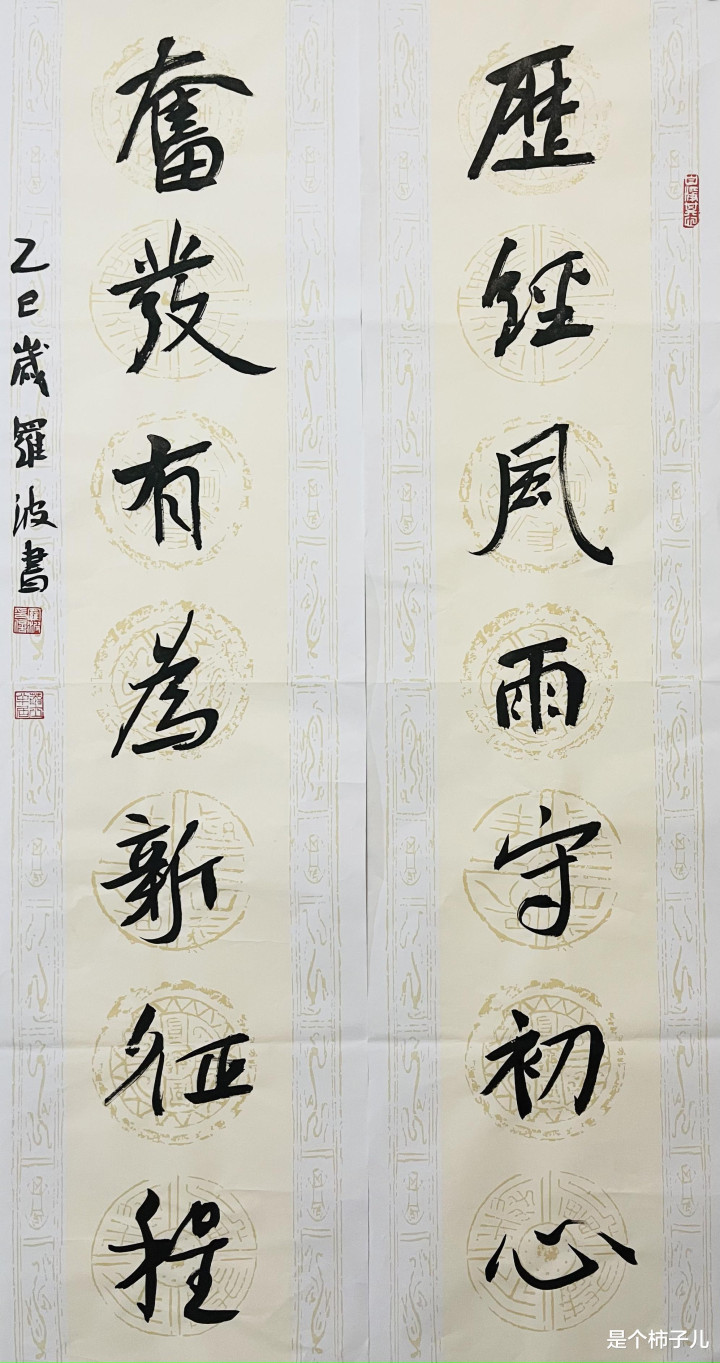 歷經風雨守初心
奮發有為新征程
乙巳歲羅波書
是个柿子儿